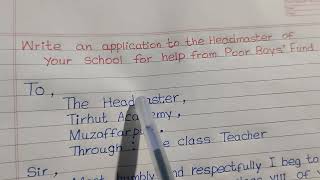 Write an application to the Headmaster of
Your School for help from Poor Boys' Fund.
To,
The Headmaster,
Tirhut Academy,
Muzaffarpur.
Through: class Teacher
Sir,
humbly and respectfully I beg to
class VIII of